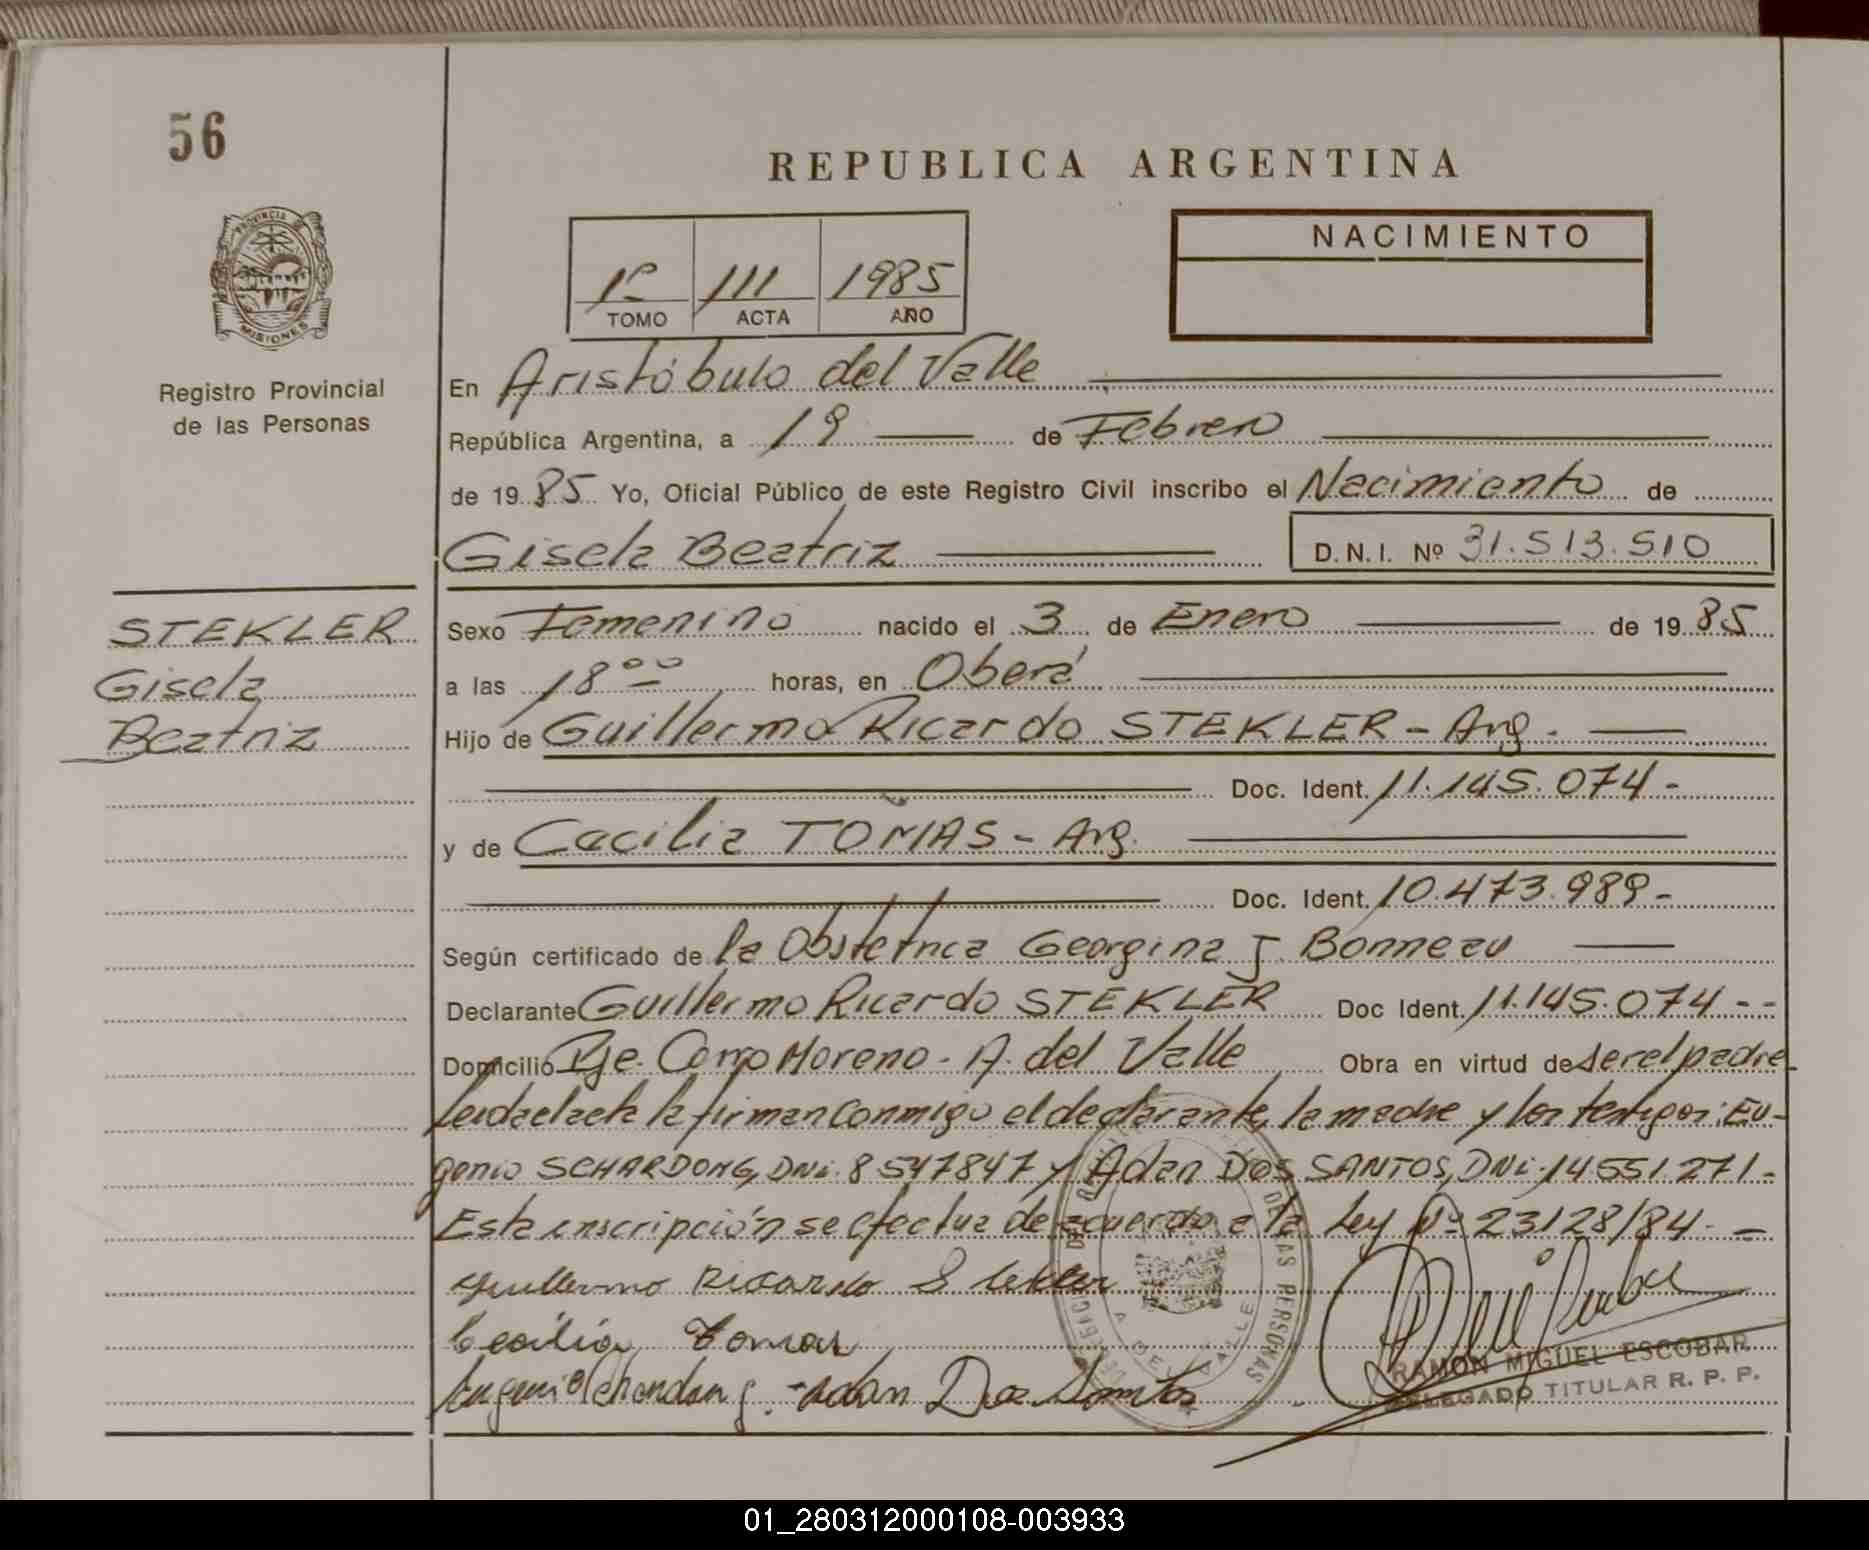 56
REPUBLICA ARGENTINA
PROVINCIA DE
MISIONES
Registro Provincial
de las Personas
1º 111 1985
TOMO ACTA AÑO
NACIMIENTO
En Aristóbulo del Valle
República Argentina, a 19 de Febrero
de 19 85 Yo, Oficial Público de este Registro Civil inscribo el Nacimiento de
Gisela Beatriz D.N.I. Nº 31.513.510
STEKLER
Gisela
Beatriz
Sexo Femenino nacido el 3 de Enero de 19 85
a las 18 00 horas, en Oberá
Hijo de Guillermo Ricardo STEKLER - Arg.
Doc. Ident. 11.145.074 -
y de Cecilia TOMAS - Arg.
Doc. Ident. 10.473.989 -
Según certificado de la Obstetrica Georgina J. Bonneau
Declarante Guillermo Ricardo STEKLER Doc Ident. 11.145.074 - -
Domicilio Pje. Cerro Moreno - A. del Valle Obra en virtud de ser el padre
Leida el acta la firman conmigo el declarante, la madre y los testigos: Eu-
genio SCHARDONG, DNi. 8547847 y Adan DOS SANTOS, DNi. 14551271 -
Esta inscripción se efectua de acuerdo a la Ley Nº 23128/84 - -
Guillermo Ricardo Stekler
Cecilia Tomas
Eugenio Schardong - adan Dos Santos
RAMON MIGUEL ESCOBAR
DELEGADO TITULAR R. P. P.
01_280312000108-003933